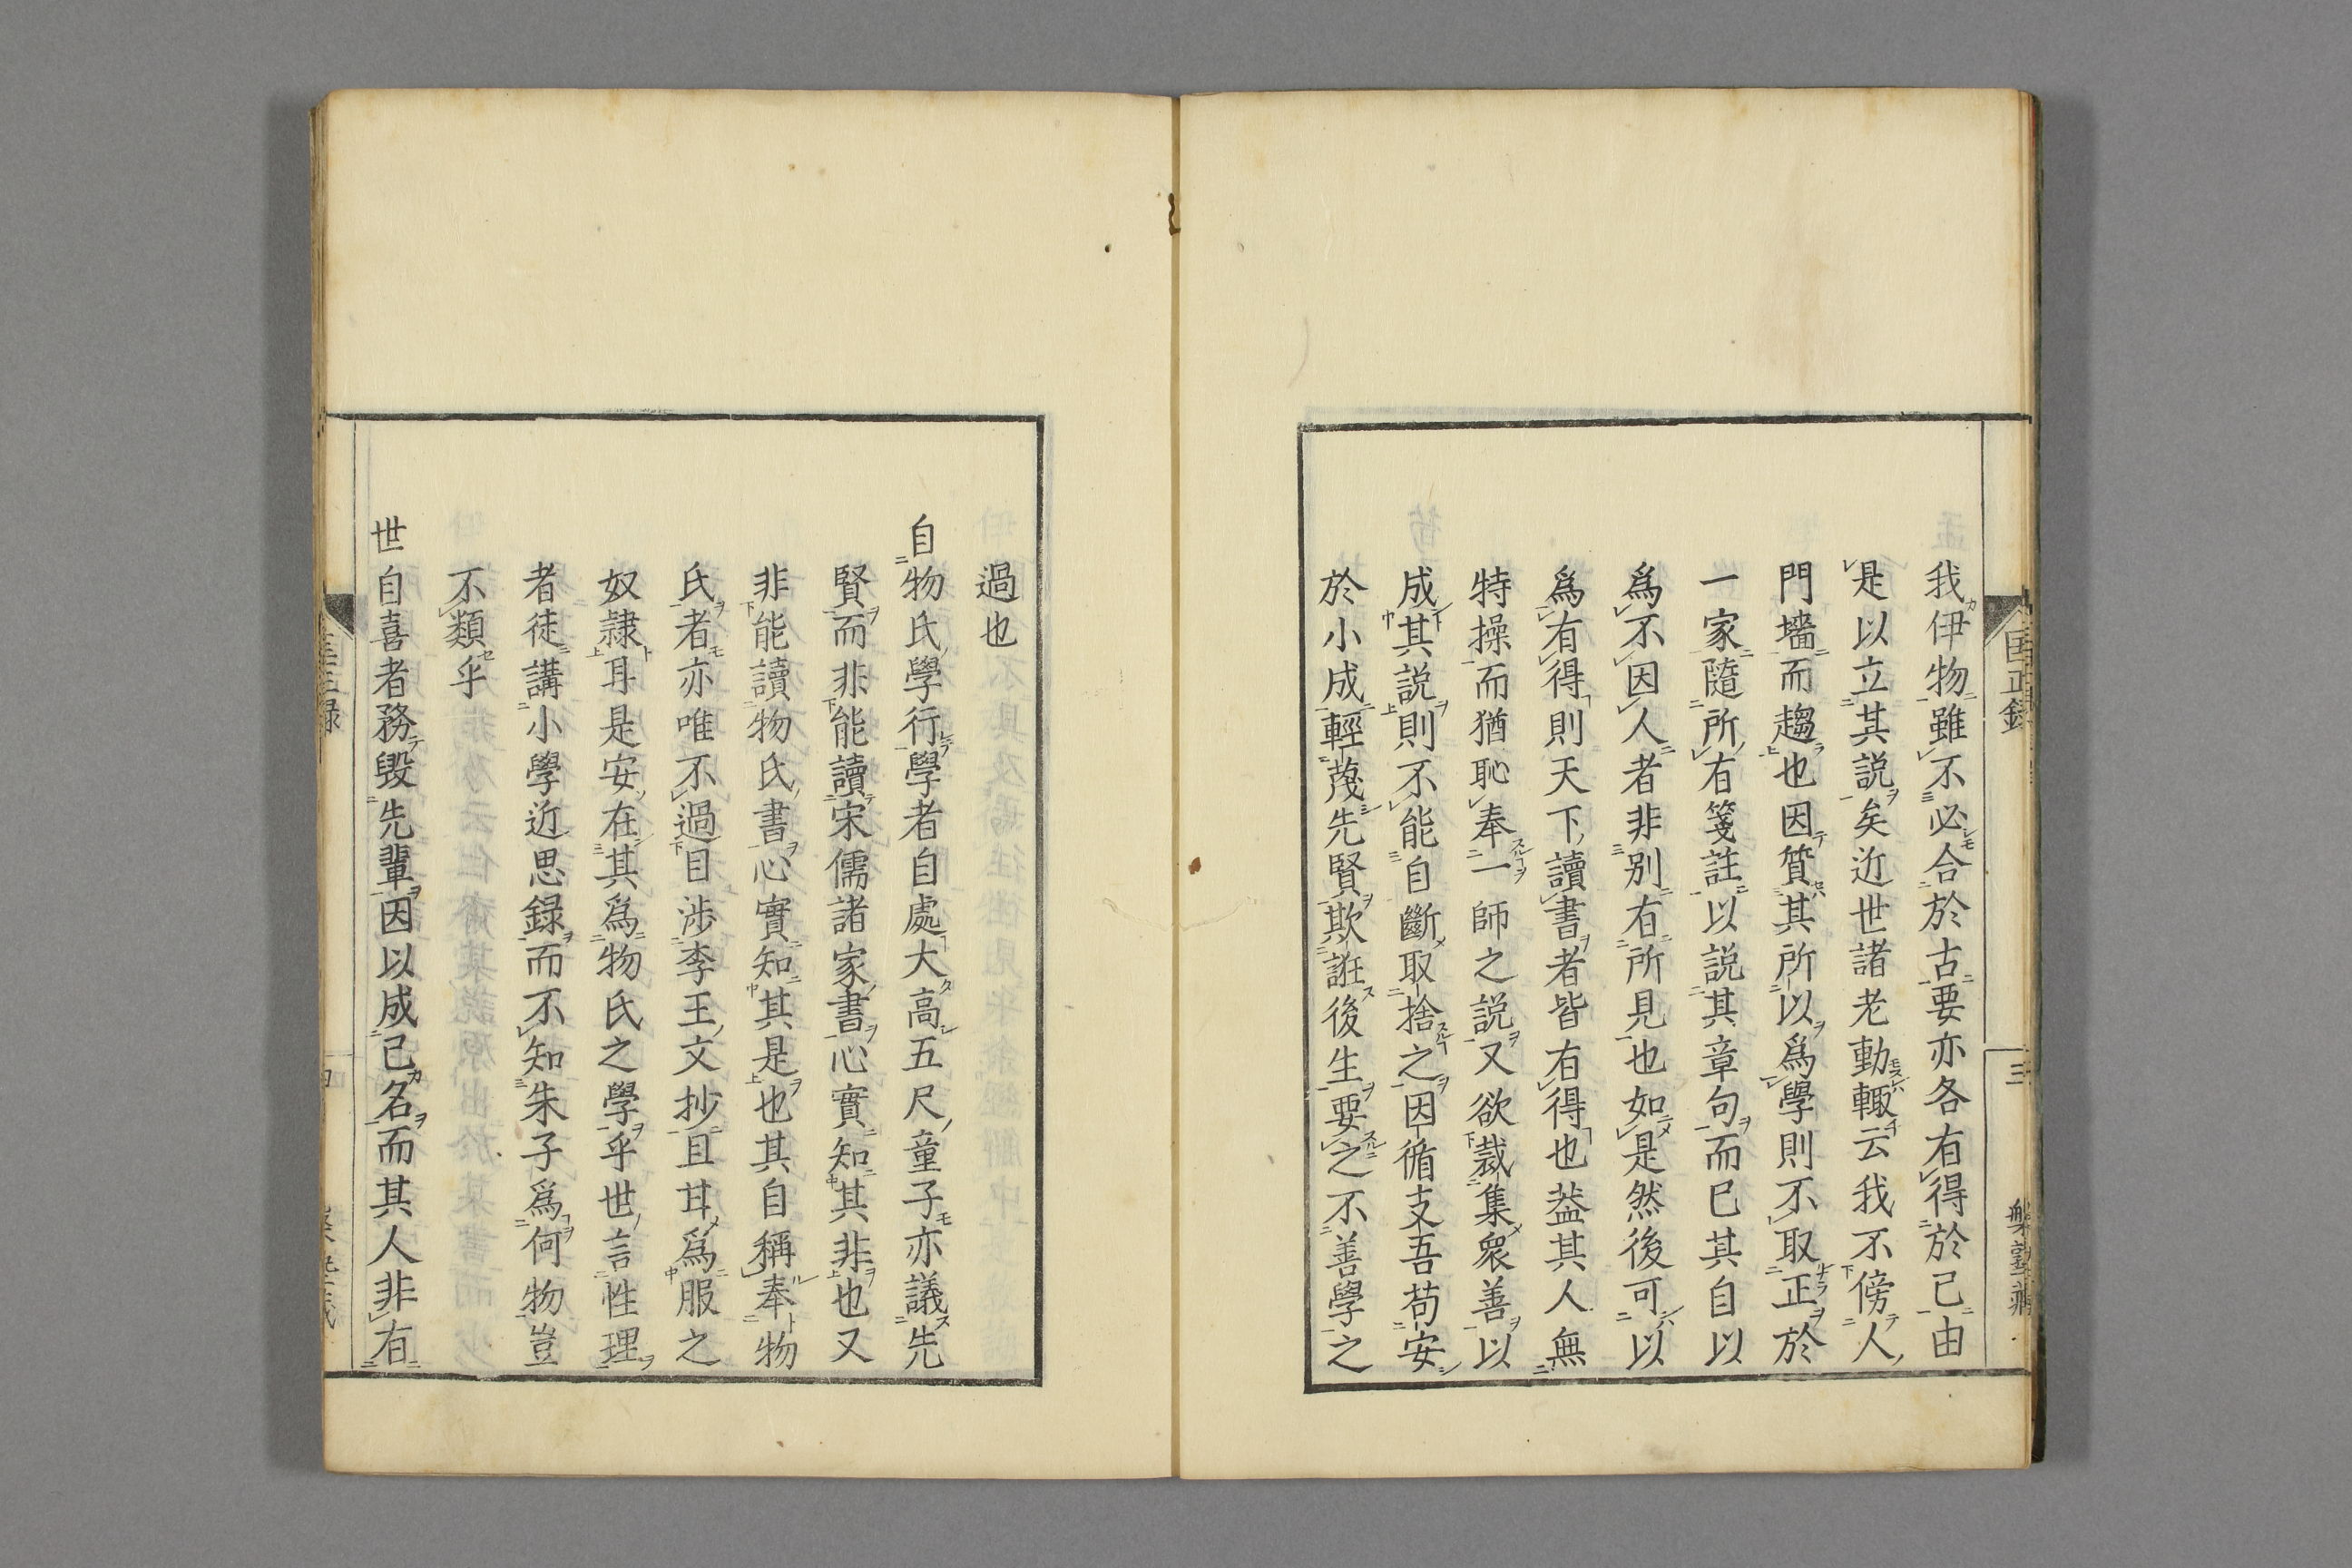 我伊物雖不必合於古要亦各有得於己由
是以立其説矣近世諸老動輙云我不傍人
門墻而趨也因質其所以爲學則不取正於
一家隨所有箋註以説其章句而已其自以
爲不因人者非別有所見也如是然後可以
爲有得則天下讀書者皆有得也葢其人無
特操而猶恥奉一師之説又欲裁集衆善以
成其説則不能自斷取捨之因循支吾苟安
於小成輕蔑先賢欺誑後生要之不善學之
過也
自物氏學行學者自處大高五尺童子亦議先
賢而非能讀宋儒諸家書心實知其非也又
非能讀物氏書心實知其是也其自稱奉物
氏者亦唯不過目渉李王文抄且甘爲服之
奴隷耳是安在其爲物氏之學乎世言性理
者徒講小學近思録而不知朱子爲何物豈
不類乎
世自喜者務毀先輩因以成己名而其人非有